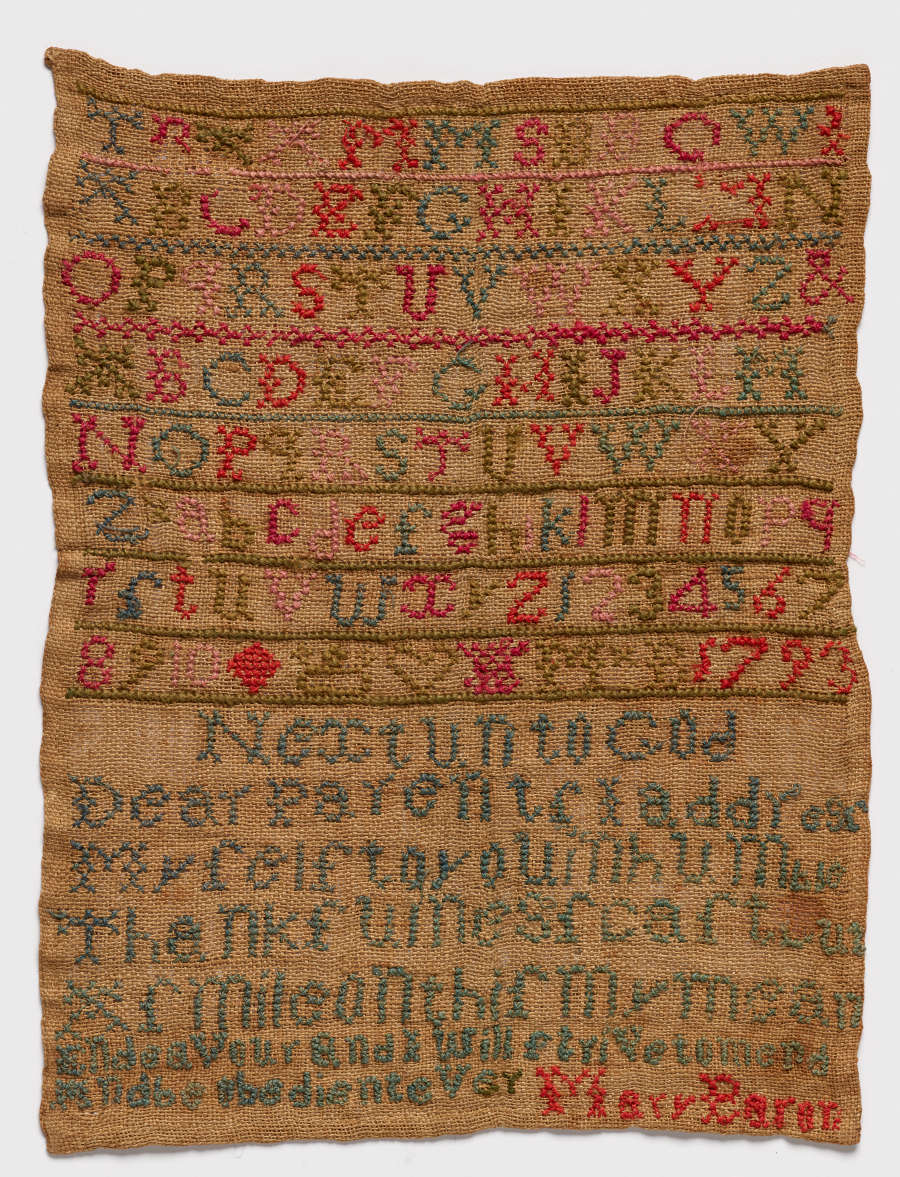 A B C D E F G H I K L M N
O P Q R S T U V W X Y Z &
A B C D E F G H I J K L M
N O P Q R S T U V W X Y
Z a b c d e f g h i k l m n o p q
r ſ t u v w x y z 1 2 3 4 5 6 7
8 9 10 1793
Next unto God
Dear Parentſ I addreſs
Myſelf to you in humble
Thankfulneſs
A ſmile on thiſ my mean
Endeavour and I will ſtrive to mend
And be obedient ever Mary Baron